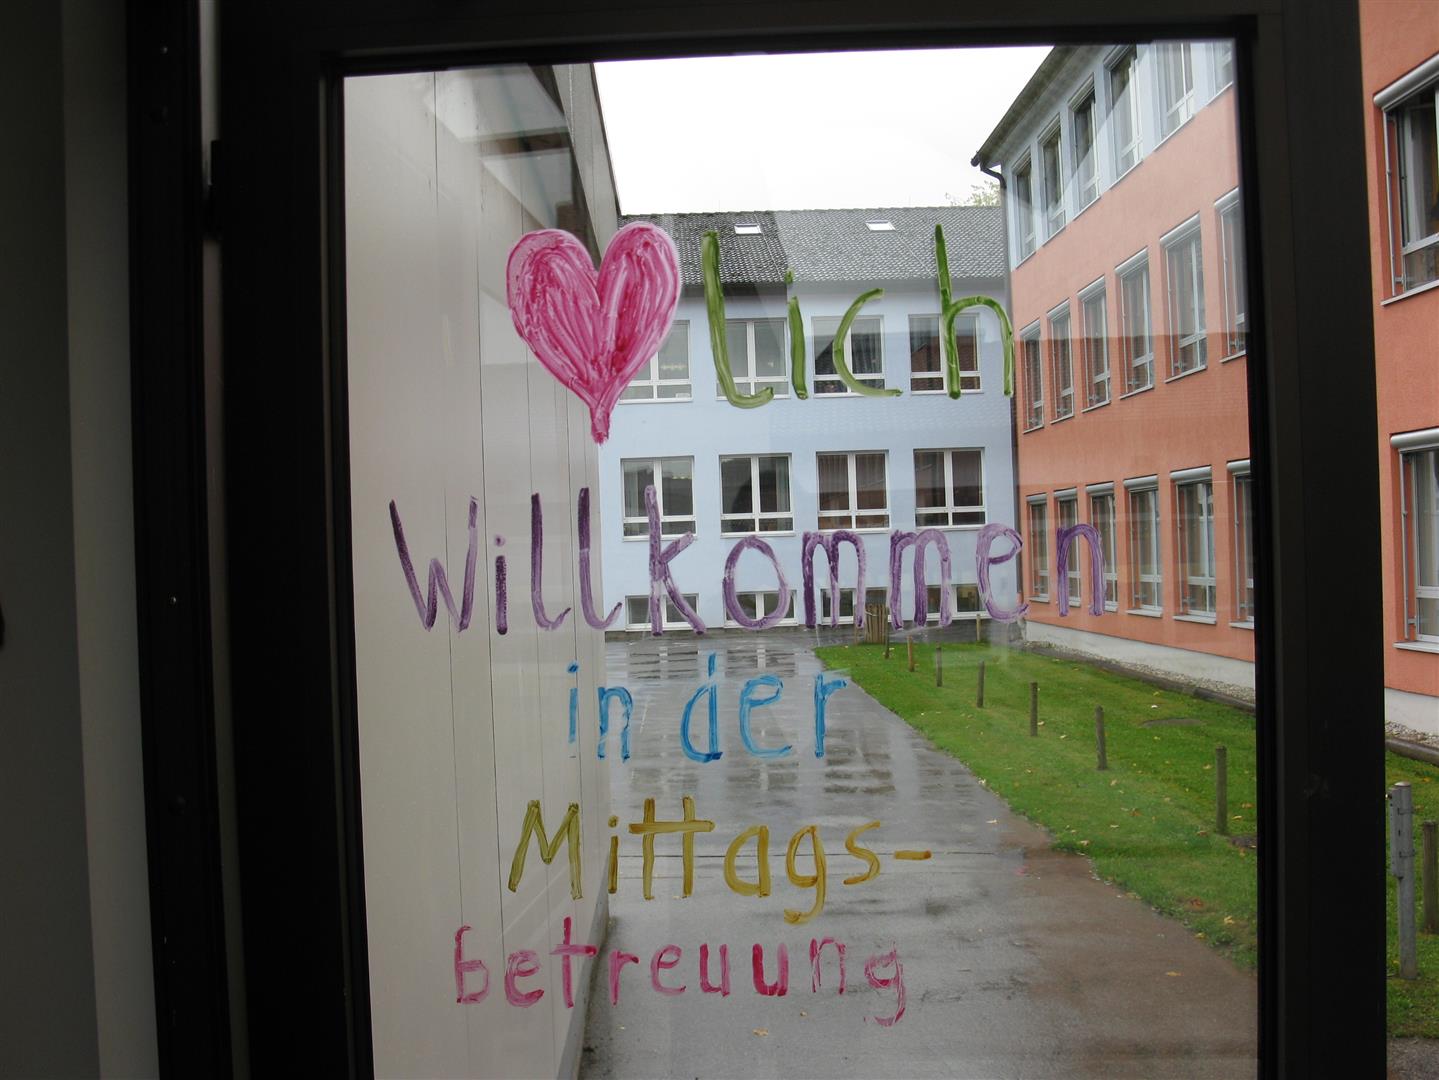 ♥lich
Willkommen
in der
Mittags-
betreuung